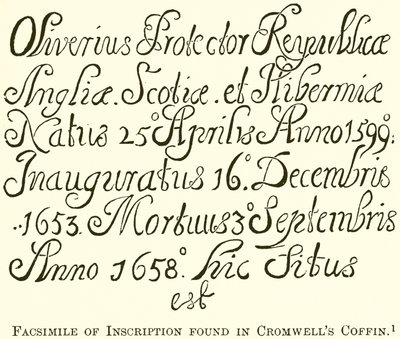 Oliverius Protector Reipublicæ
Angliæ. Scotiæ. et Hiberniæ
Natus 25° Aprilis Anno 1599°.
Inauguratus 16°. Decembris
..1653. Mortuus 3° Septembris
Anno 1658°. hic Situs
est
FACSIMILE OF INSCRIPTION FOUND IN CROMWELL'S COFFIN.¹